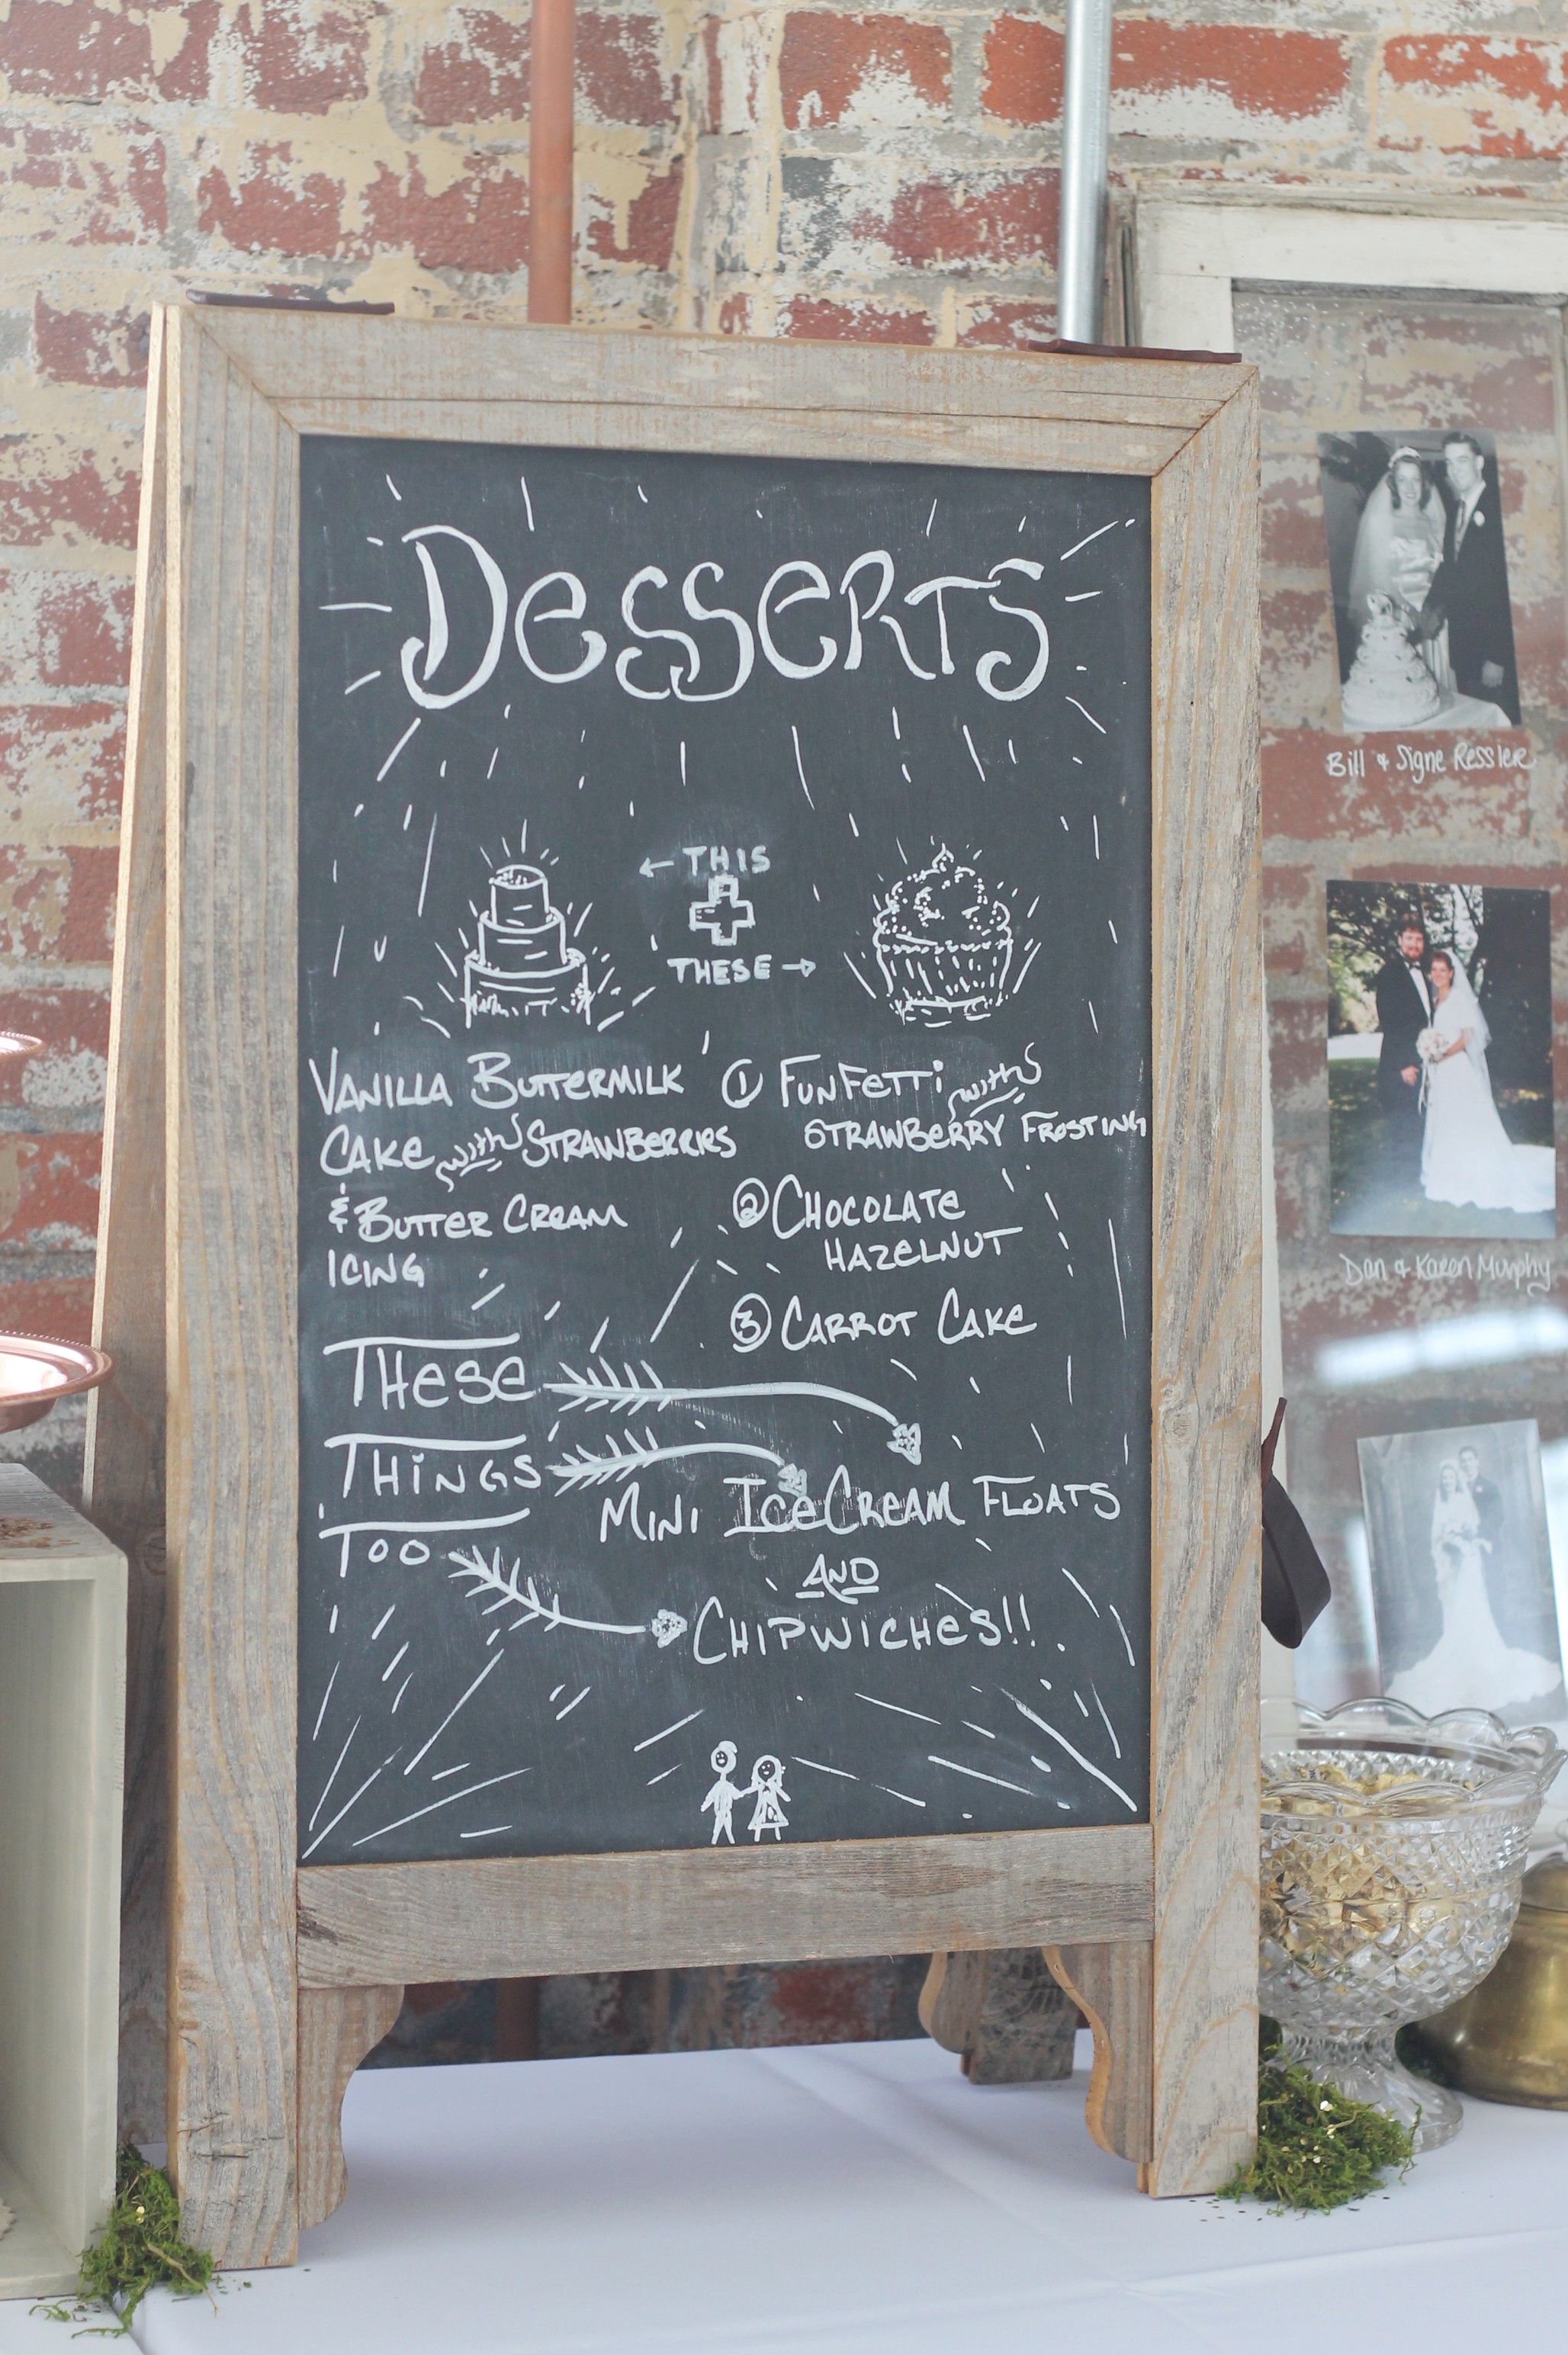 Desserts
← THIS
THESE →
Vanilla Buttermilk
Cake with Strawberries
& Butter Cream
Icing
① Funfetti with
Strawberry Frosting
② Chocolate
Hazelnut
③ Carrot Cake
These
Things
Too
Mini Ice Cream Floats
AND
Chipwiches!!
Bill & Signe Ressler
Dan & Karen Murphy